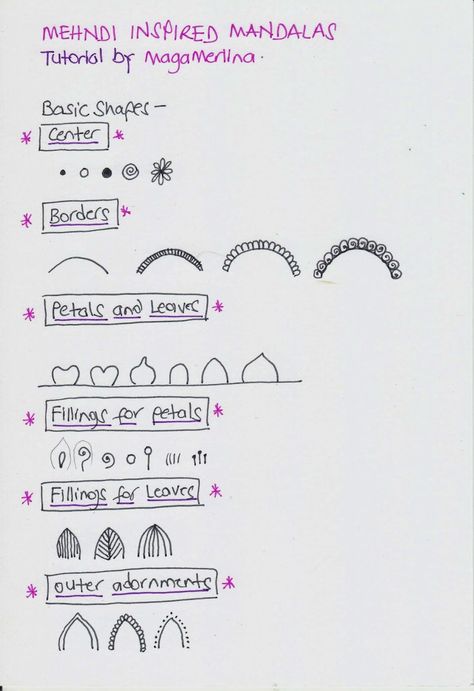 MEHNDI INSPIRED MANDALAS
Tutorial by MagaMerlina.
Basic Shapes -
* Center *
* Borders *
* Petals and Leaves *
* Fillings for petals *
* Fillings for Leaves *
* outer adornments *